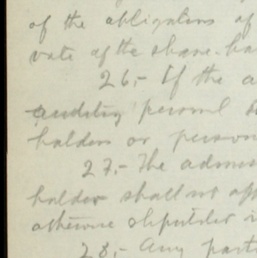 of the obligations of
vote of the share-ha
26,- If the a
auditing personnel
holders or person
27,- The admin
holder shall not
otherwise
28,- Any part